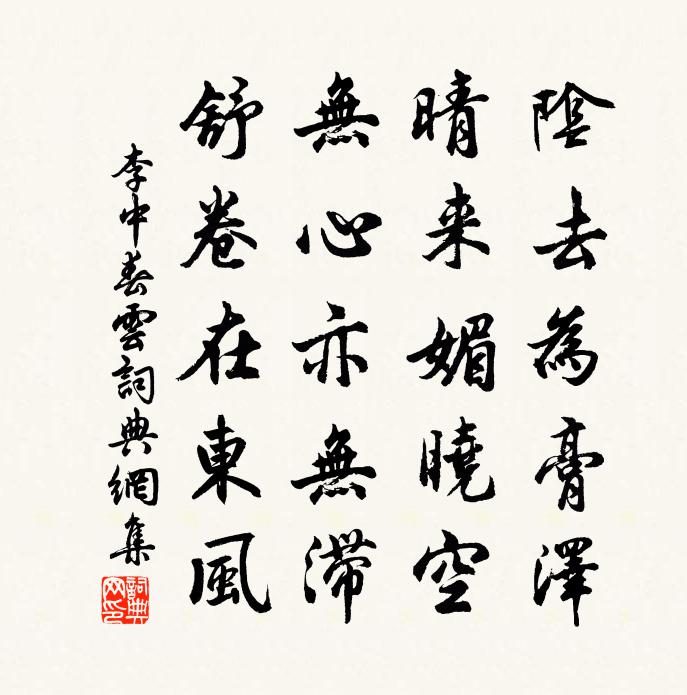 陰去為膏澤
晴来媚曉空
無心亦無滯
舒卷在東風
李中春雲詞典網集
詞典网印